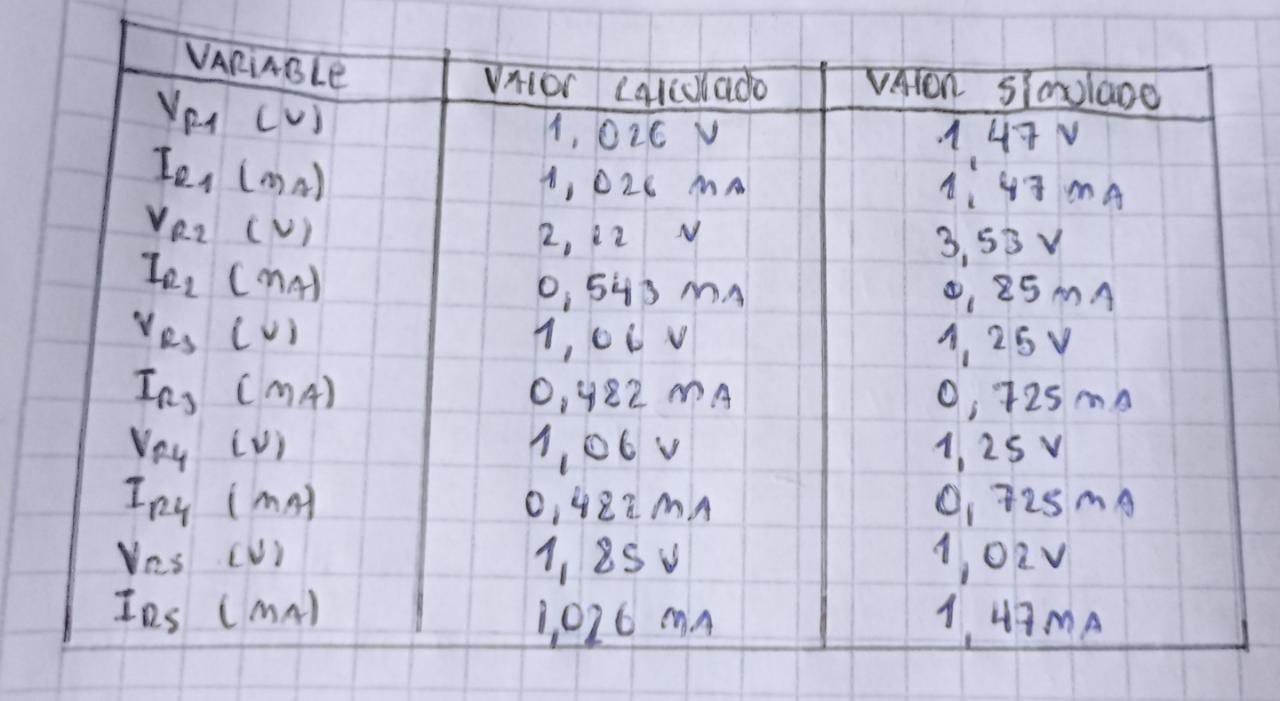 VARIABLE VALOR CALCULADO VALOR SIMULADO
VR1 (V) 1,026 V 1,47 V
IR1 (mA) 1,026 mA 1,47 mA
VR2 (V) 2,22 V 3,53 V
IR2 (mA) 0,543 mA 0,85 mA
VR3 (V) 1,06 V 1,25 V
IR3 (mA) 0,482 mA 0,725 mA
VR4 (V) 1,06 V 1,25 V
IR4 (mA) 0,482 mA 0,725 mA
VR5 (V) 1,85 V 1,02 V
IR5 (mA) 1,026 mA 1,47 mA